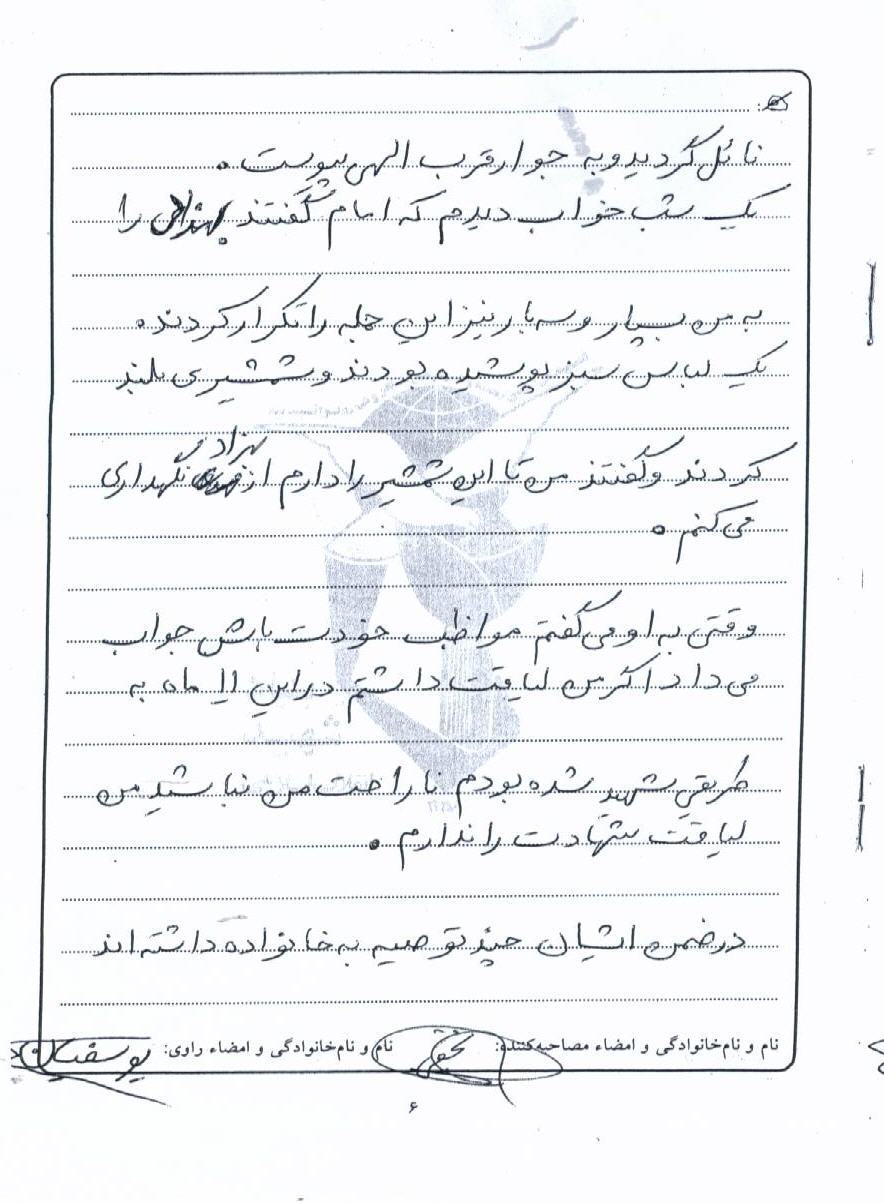 نائل گردید و به جوار قرب الهی پیوست .
یک شب خواب دیدم که امام گفتند بهزاد را
به من بسپار و سه بار نیز این جمله را تکرار کردند .
یک لباس سبز پوشیده بودند و شمشیری بلند
بهزاد
کردند و گفتند من تا این شمشیر را دارم از نگهداری
می کنم .
وقتی به او می گفتم مواظب خودت باش جواب
می داد اگر من لیاقت داشتم در این ۱۱ ماه به
طریقی شهید شده بودم ناراحت من نباشید من
لیاقت شهادت را ندارم .
در ضمن ایشان چند توصیه به خانواده داشته اند
نام و نام‌خانوادگی و امضاء مصاحبه‌کننده: نام و نام‌خانوادگی و امضاء راوی:
۶